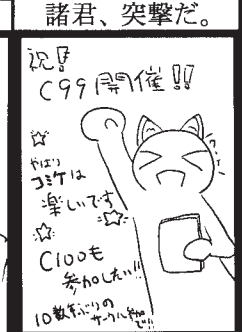 諸君、突撃だ。
祝!
C99開催!!
やはり
コミケは
楽しいです
C100も
参加したい!!
10数年ぶりの
サークル参加で!!